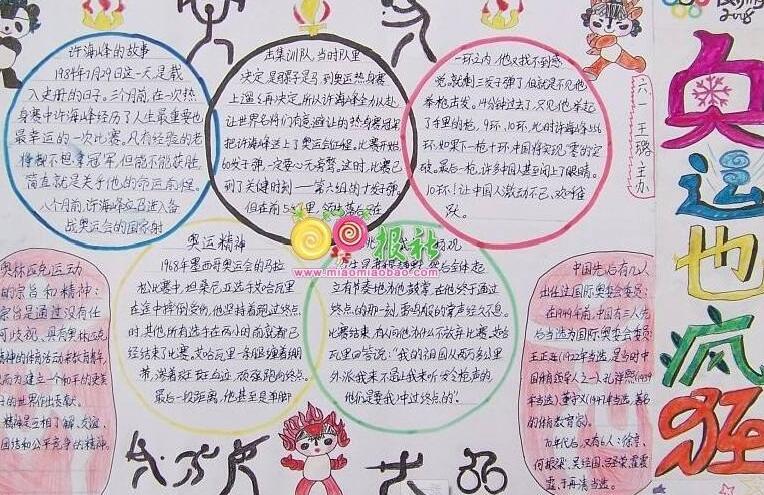 许海峰的故事
1984年7月29日这一天是载
入史册的日子。三个月前,在一次热
身赛中许海峰经历了人生最重要也
最幸运的一次比赛。凡有经验的老
将
简直就是关乎他的命运前程。
八个月前,许海峰应召进入备
战奥运会的国家射
击集训队,当时队里
决定,是骡子是马,到奥运热身赛
上遛遛再决定,所以许海峰全力以赴
让世界名将们有意避让的热身赛冠军
把许海峰送上了奥运会征程。比赛开始
60发子弹,一定要心无旁骛。这时,比赛已
到了关键时刻——第六组的十发子弹。
但在前5
一环之内,他又找不到感
觉,就剩三发子弹了,但就是不见他
举枪击发。14分钟过去了,只见他举起
了手里的枪。9环、10环,此时许海峰
环,如果下一枪十环中国将实现“零的突
破。最后一枪,许多中国人甚至闭上了眼睛。
10环!让中国人激动不已,欢呼雀
跃。
六一 王璐 主办
2008
奥运也疯狂
奥林匹克运动
的宗旨和精神:
宗旨是通过没有任
何歧视、具有奥林匹克
精神的体育活动来教育青年,
从而为建立一个和平的更美
好的世界作出贡献。
精神是互相了解、友谊、
团结和公平竞争的精神。
奥运精神
1968年墨西哥奥运会的马拉
松比赛中,坦桑尼亚选手艾哈瓦里
在途中摔倒受伤,他坚持着跑过终点
时,其他所有选手在两小时前就都已
经结束了比赛。艾哈瓦里一条腿缠着绷
带,淌着斑斑血迹,顽强跑向终点。
最后一段距离,他甚至是单脚
报社
www.miaomiaobao.com
立有节奏地为他鼓掌,在他终于通过
终点的那一刻,雷鸣般的掌声经久不息。
比赛结束,有人问他为什么不放弃比赛。艾哈
瓦里回答说:“我的祖国从两万多公里
外派我来不是让我来听发令枪声的
他们是要我冲过终点的”。
中国先后有几人
出任过国际奥委会委员:
在1949年前,中国有三人先
后当选为国际奥委会委员
王正廷(1922年当选,是当时中
国体育领导人之一)、孔祥熙(1939
年当选)、董守义(1947年当选,著名
的体育教育家)。
70年代后,又有6人:徐亨、
何振梁、吴经国、吕圣荣
于再清当选。